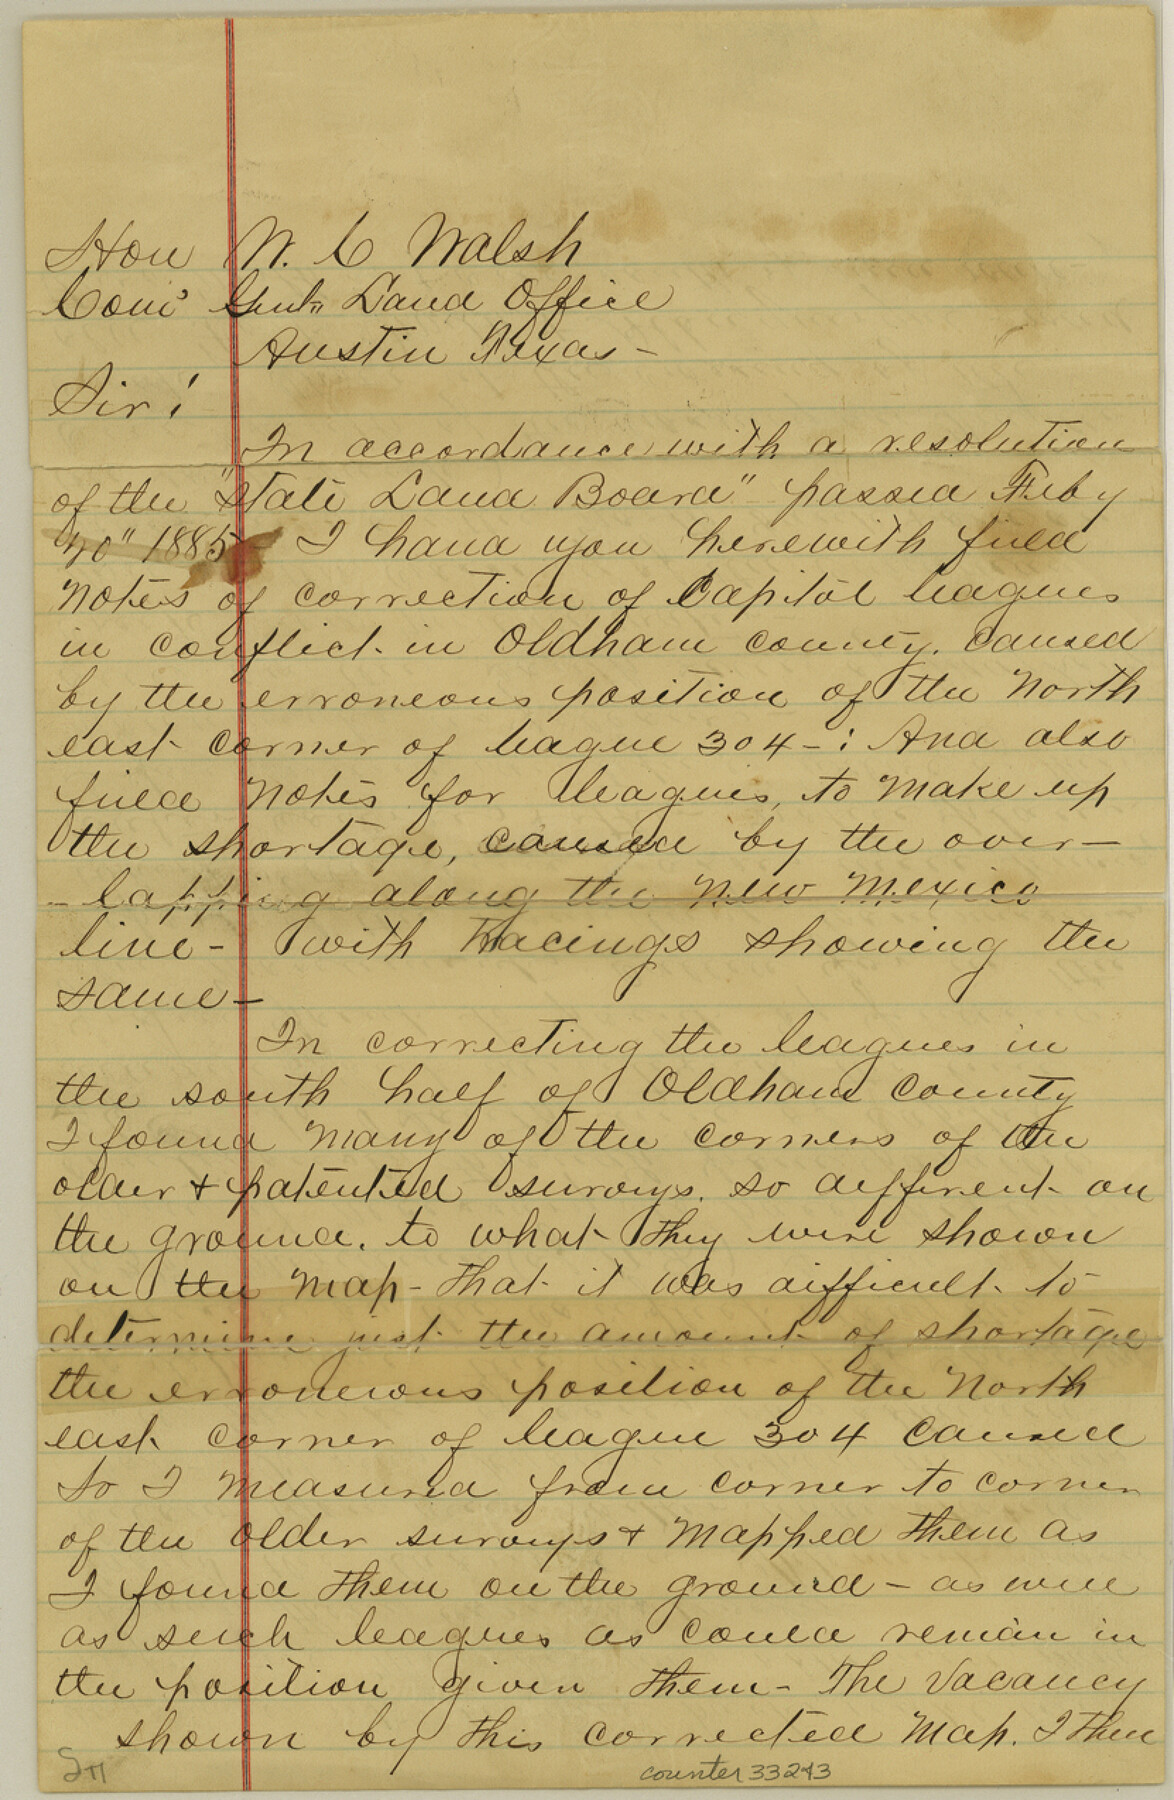 Hon W. C Walsh
Com' Genl" Land Office
Austin Texas -
Sir!
In accordance with a resolution
of the "State Land Board" passed Feby
20" 1885 I hand you herewith field
notes of correction of Capitol leagues
in conflict in Oldham county. caused
by the erroneous position of the North
east corner of league 304 - : And also
field notes for leagues, to make up
the shortage, caused by the over -
- lapping along the New Mexico
line - with tracings showing the
same -
In correcting the leagues in
the south half of Oldham County
I found many of the corners of the
older & patented surveys. so different on
the ground. to what they were shown
on the map - that it was difficult to
determine just the amount of shortage
the erroneous position of the North
east corner of league 304 caused
so I measured from corner to corner
of the older surveys & mapped them as
I found them on the ground - as well
as such leagues as could remain in
the position given them - The vacancy
shown by this corrected map. I then
counter 33243